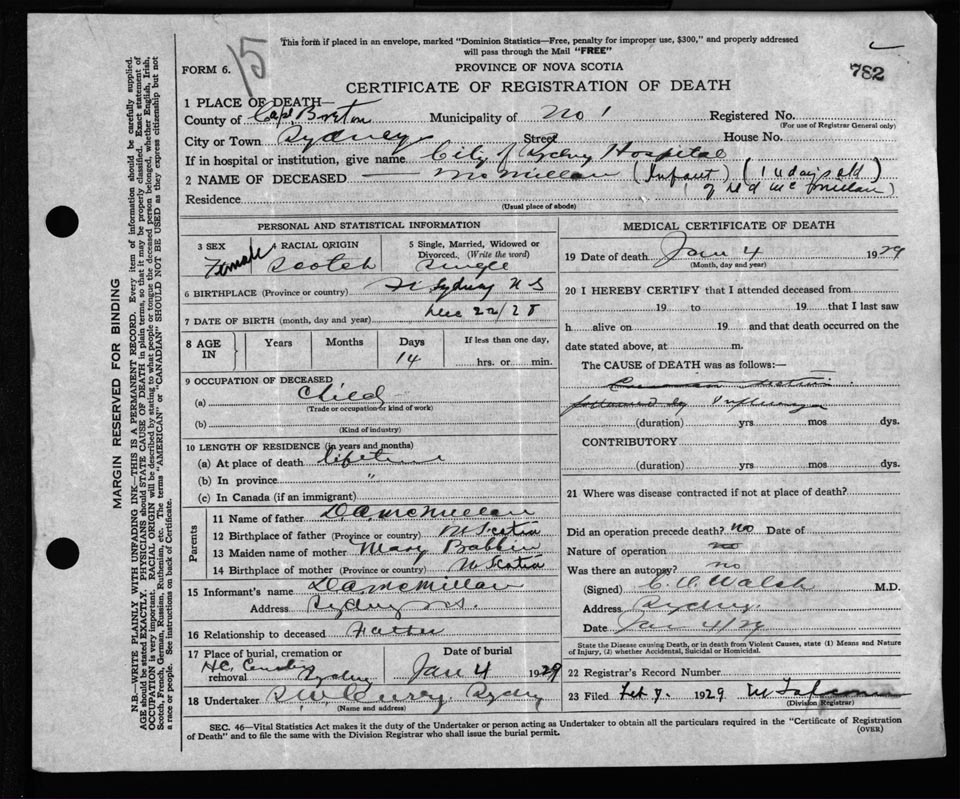 15
This form if placed in an envelope, marked "Dominion Statistics—Free, penalty for improper use, $300," and properly addressed
will pass through the Mail "FREE"
FORM 6.
PROVINCE OF NOVA SCOTIA
782
CERTIFICATE OF REGISTRATION OF DEATH
1 PLACE OF DEATH—
County of Cape Breton Municipality of No 1 Registered No.
(For use of Registrar General only)
City or Town Sydney Street House No.
If in hospital or institution, give name City of Sydney Hospital
2 NAME OF DECEASED — McMillan (Infant) (14 days old)
of D A McMillan)
Residence
(Usual place of abode)
PERSONAL AND STATISTICAL INFORMATION
3 SEX Female
4 RACIAL ORIGIN Scotch
5 Single, Married, Widowed or Divorced. (Write the word) Single
6 BIRTHPLACE (Province or country) Sydney N S
7 DATE OF BIRTH (month, day and year) Dec 22/28
8 AGE IN Years Months Days 14 If less than one day, hrs. or min.
9 OCCUPATION OF DECEASED
(a) Child
(Trade or occupation or kind of work)
(b)
(Kind of industry)
10 LENGTH OF RESIDENCE (in years and months)
(a) At place of death lifetime
(b) In province "
(c) In Canada (if an immigrant)
Parents
11 Name of father D.A. McMillan
12 Birthplace of father (Province or country) N Scotia
13 Maiden name of mother Mary Babbin
14 Birthplace of mother (Province or country) N Scotia
15 Informant's name D A McMillan
Address Sydney N.S.
16 Relationship to deceased Father
17 Place of burial, cremation or removal Sydney
Date of burial Jan 4 1929
18 Undertaker Sydney
(Name and address)
MEDICAL CERTIFICATE OF DEATH
19 Date of death Jan 4 1929
(Month, day and year)
20 I HEREBY CERTIFY that I attended deceased from
19 to 19 that I last saw
h alive on 19 and that death occurred on the
date stated above, at m.
The CAUSE of DEATH was as follows:—
followed by Influenza
(duration) yrs mos dys.
CONTRIBUTORY
(duration) yrs mos dys.
21 Where was disease contracted if not at place of death?
Did an operation precede death? no Date of
Nature of operation no
Was there an autopsy? no
(Signed) Walsh M.D.
Address Sydney.
Date Jan 4/29
State the Disease causing Death, or in death from Violent Causes, state (1) Means and Nature
of Injury, (2) whether Accidental, Suicidal or Homicidal.
22 Registrar's Record Number
23 Filed Feb 1929
(Division Registrar)
SEC. 46—Vital Statistics Act makes it the duty of the Undertaker or person acting as Undertaker to obtain all the particulars required in the "Certificate of Registration
of Death" and to file the same with the Division Registrar who shall issue the burial permit.
(OVER)
MARGIN RESERVED FOR BINDING
N.B.—WRITE PLAINLY WITH UNFADING INK—THIS IS A PERMANENT RECORD. Every item of information should be carefully supplied.
AGE should be stated EXACTLY. PHYSICIANS should STATE CAUSE OF DEATH in plain terms, so that it may be properly classified. Exact statement of
OCCUPATION is very important. RACIAL ORIGIN will be described by stating to what people or tongue the deceased person belonged, whether English, Irish,
Scotch, French, German, Russian, Ruthenian, etc. The terms "AMERICAN" or "CANADIAN" SHOULD NOT BE USED as they express citizenship but not
a race or people. See instructions on back of Certificate.